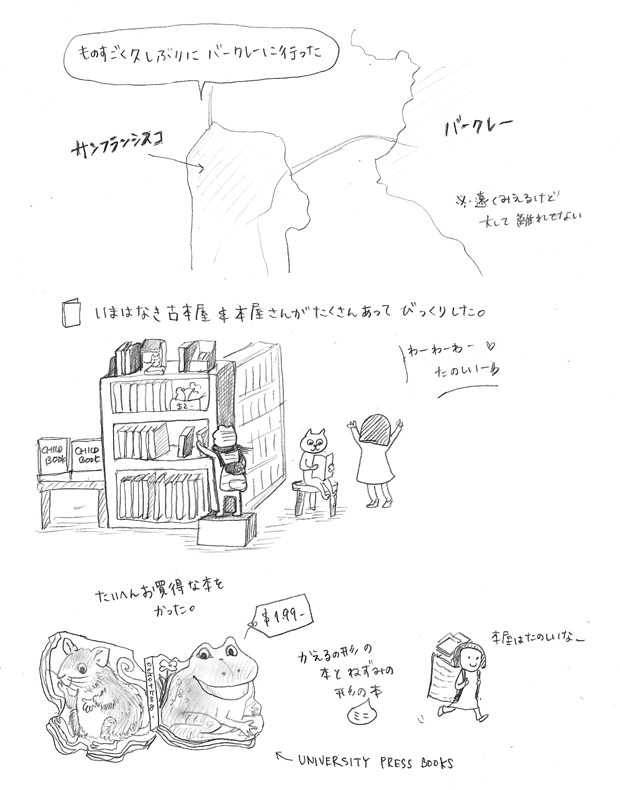 ものすごく久しぶりに バークレーに行った
サンフランシスコ
バークレー
※遠くみえるけど
大して 離れてない
いまはなき古本屋 本屋さんがたくさんあって びっくりした。
わーわーわー♡
たのしいー
CHILD
BOOK
CHILD
BOOK
$2-
たいへんお買得な本を
かった。
$1.99-
かえるの形の
本と ねずみの
形の本
ミニ
本屋はたのしいなー
← UNIVERSITY PRESS BOOKS